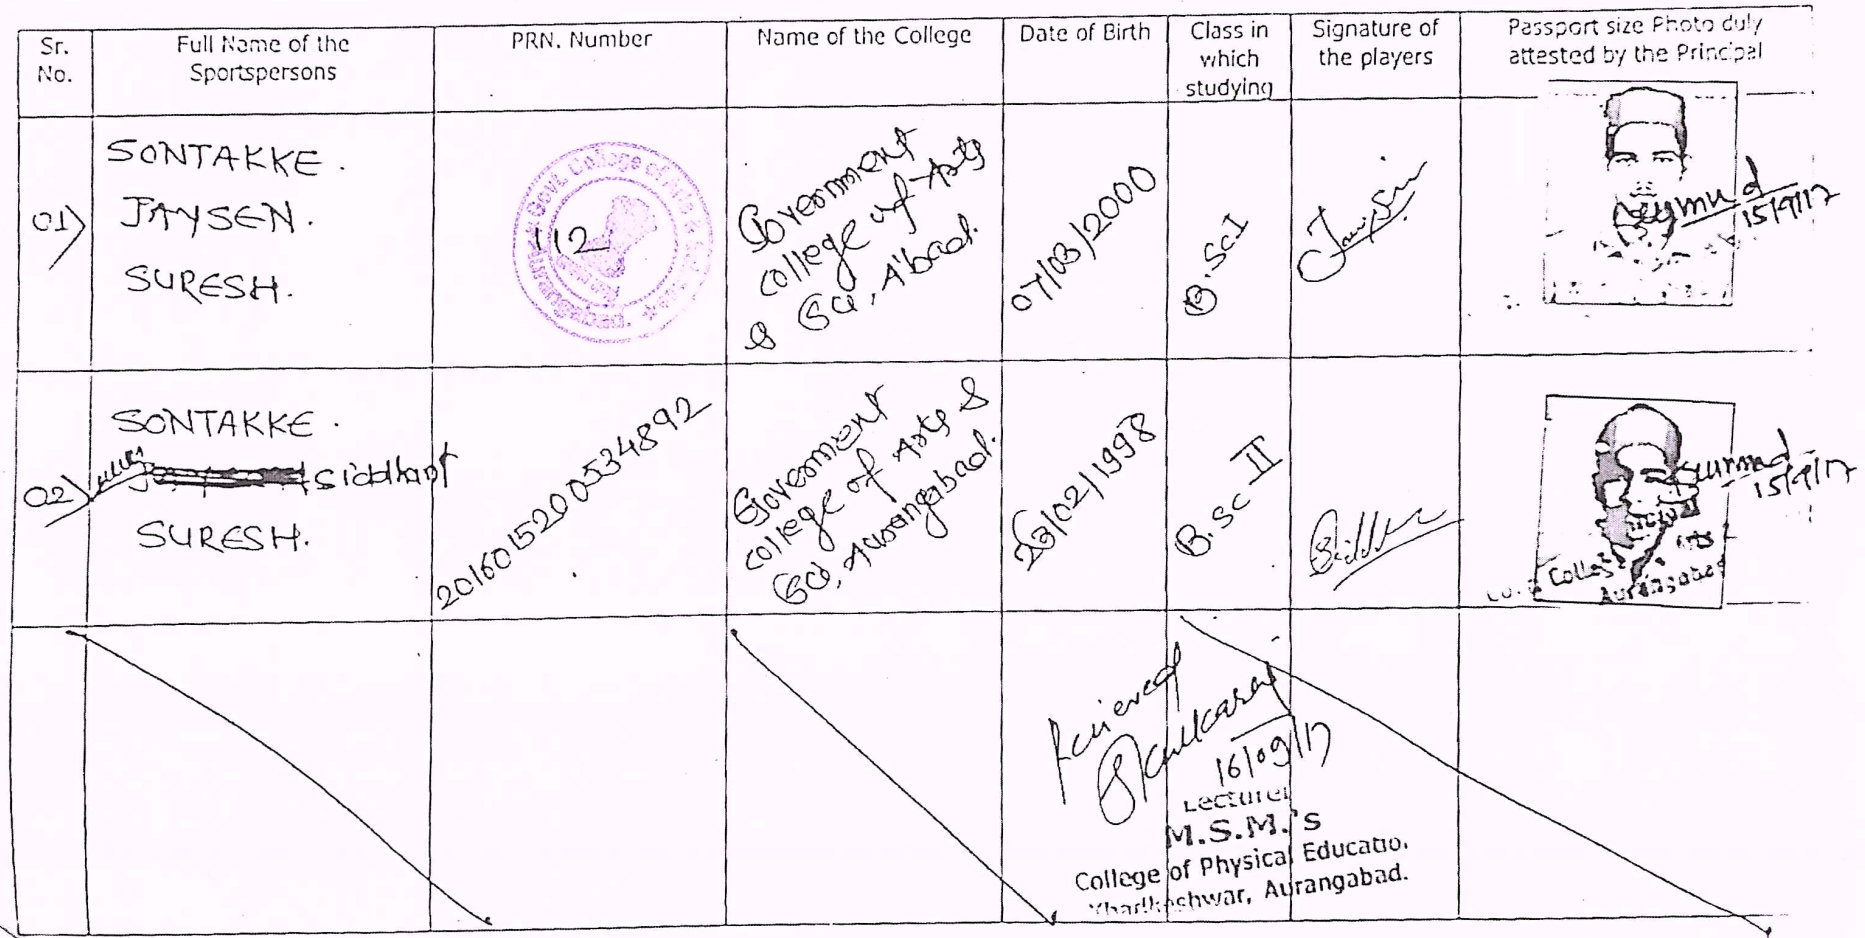 Sr. No.
Full Name of the Sportspersons
PRN. Number
Name of the College
Date of Birth
Class in which studying
Signature of the players
Passport size Photo duly attested by the Principal
01)
SONTAKKE.
JAYSEN.
SURESH.
112
Govt. College of Arts
Government
college of Arts
& Sci, A'bad.
07/03/2000
B.Sc I
15/9/17
02)
SONTAKKE.
Siddhant
SURESH.
2016015200534892
Government
college of Arts &
Sci, Aurangabad.
26/02/1998
B.Sc II
15/9/17
Aurangabad
Recieved
16/09/17
Lecturer
M.S.M.'s
College of Physical Educatio.
Aurangabad.